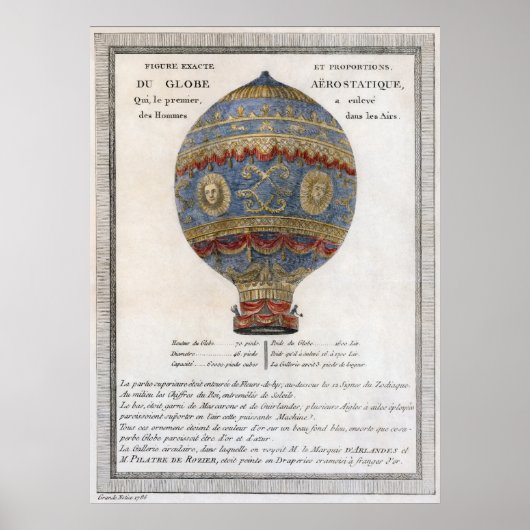 FIGURE EXACTE ET PROPORTIONS.
DU GLOBE AËROSTATIQUE,
Qui, le premier, a enlevé
des Hommes dans les Airs.
Hauteur du Globe........70. pieds
Diametre...............46. pieds
Capacité......60000 pieds cubes
Poids du Globe..........1600 Liv.
Poids qu'il a enlevé 16 à 1700 Liv.
La Gallerie avoit 3. pieds de largeur.
La partie superieure étoit entourée de Fleurs-de-lys, au-dessous les 12 Signes du Zodiaque.
Au milieu les Chiffres du Roi, entremêlés de Soleils.
Le bas, étoit garni de Mascarons et de Guirlandes, plusieurs Aigles a ailes éployées
paroissoient suporter en l'air cette puissante Machine.
Tous ces ornemens étoient de couleur d'or sur un beau fond bleu, ensorte que ce su-
perbe Globe paroissoit être d'or et d'azur.
La Gallerie circulaire, dans laquelle on voyoit M. le Marquis D'ARLANDES et
M. PILATRE DE ROZIER, étoit peinte en Draperies cramoisi à franges d'or.
1786